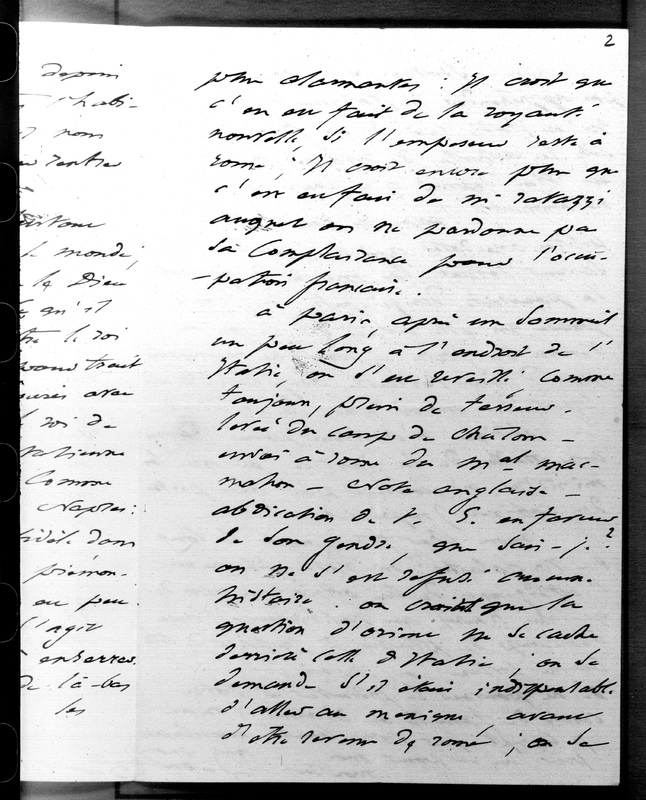 2
depuis
l'habi-
nous
rentre
le monde,
Dieu
qu'il
le roi
voudrait
avec
roi de
italienne
comme
Naples:
fidèle dans
piémon-
un peu
s'agit
enterrer
de là-bas
les
plus alarmantes : Il croit que
c'en est fait de la royauté
nouvelle, si l'empereur reste à
rome ; Il croit encore plus que
c'en est fait de mr ratazzi
auquel on ne pardonne pas
sa complaisance pour l'occu-
-pation française.
à paris, après un sommeil
un peu long à l'endroit de l'
Italie, on s'est réveillé, comme
toujours, plein de terreur.
levée du camp de châlons -
envoi à rome du mal mac-
mahon - note anglaise -
abdication de V. E. en faveur
de son gendre, que sais-je ?
on ne s'est refusé aucune
histoire. on craint que la
question d'orient ne se cache
derrière celle d'Italie ; on se
demande s'il était indispensable
d'aller au mexique, avant
d'être revenu de rome ; on se